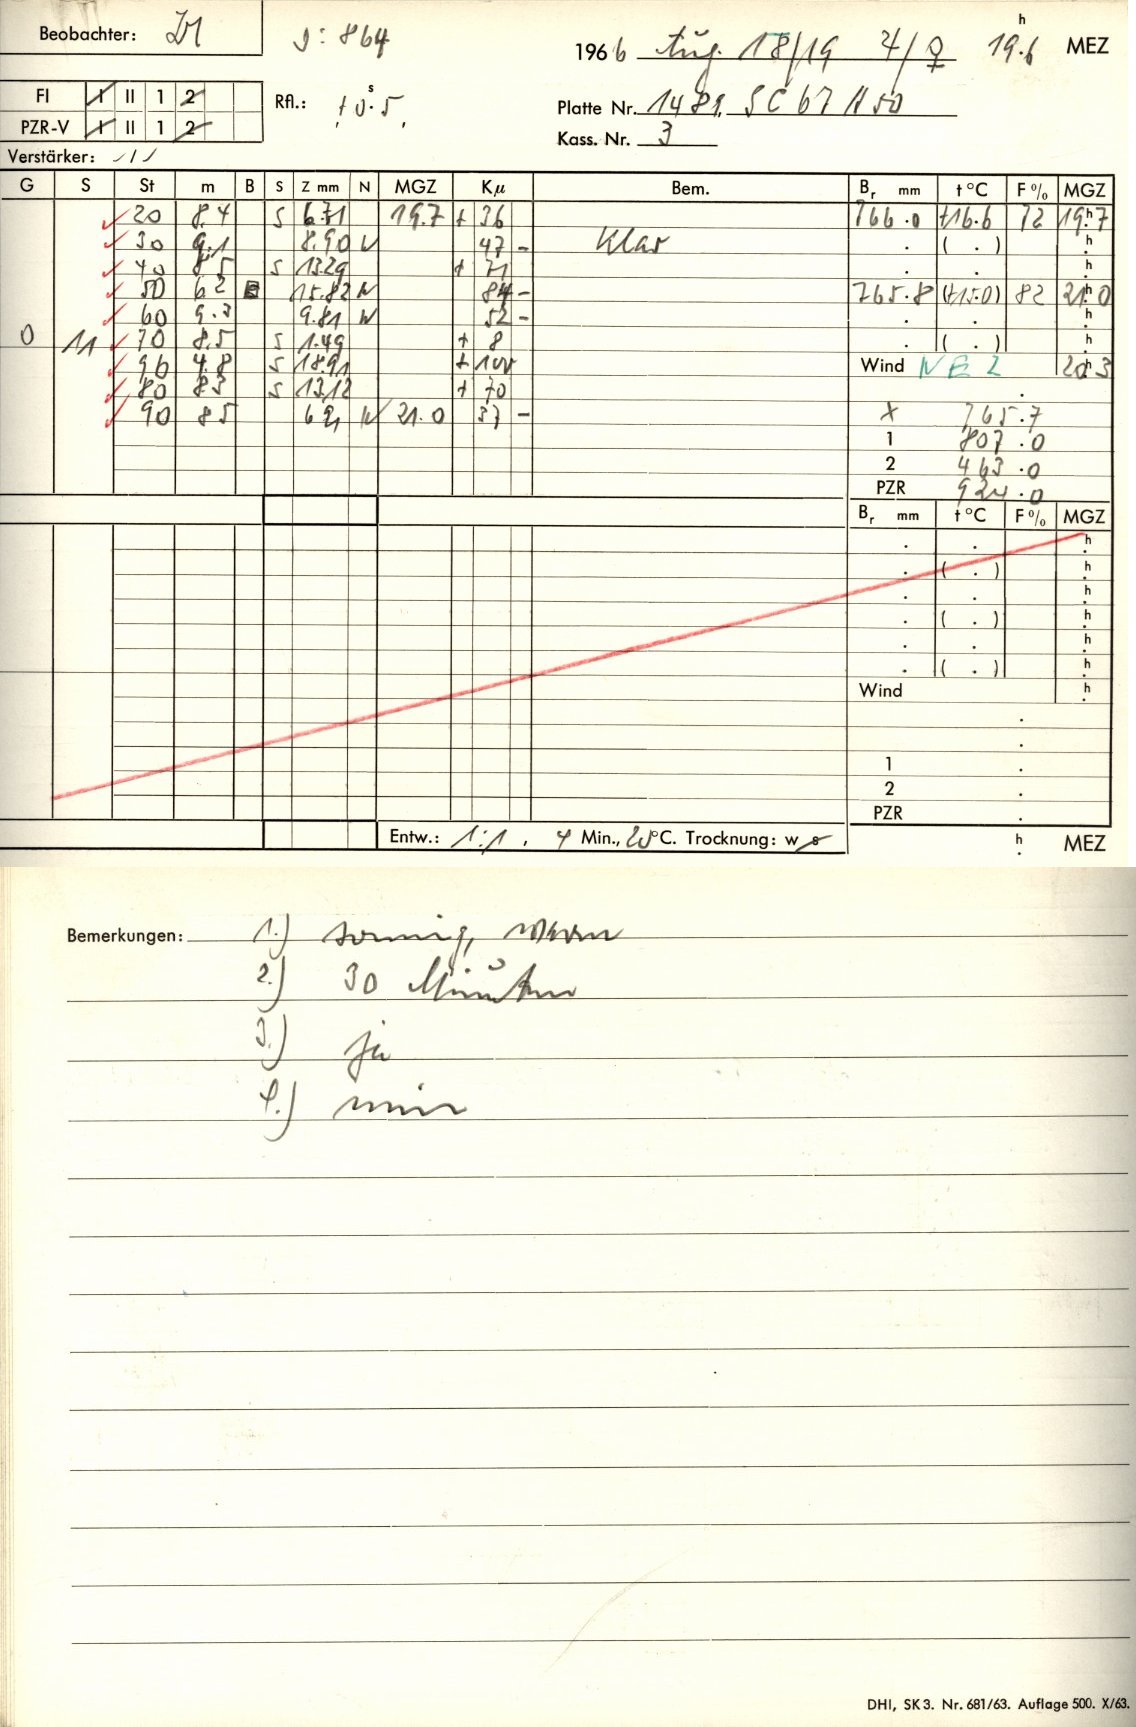 Beobachter:
J: 864
1966 Aug. 18/19 ♃/♀ 19.6 h MEZ
FI I II 1 2
Rfl.: +0.5 s
Platte Nr. 1489, SC 67 H 50
PZR-V I II 1 2
Kass. Nr. 3
Verstärker:
G S St m B S Z mm N MGZ Kμ Bem. Br mm t °C F % MGZ
20 8.4 S 6.71 19.7 + 36 766.0 +16.6 72 19h7
30 9.1 8.90 N 47 - Klar . ( . ) h
40 8.5 S 13.29 + 71 . . h
50 6.2 B 15.82 N 84 - 765.8 (+15.0) 82 21h0
60 9.3 9.81 N 52 - . . h
0 11 70 8.5 S 1.49 + 8 . ( . ) h
96 4.8 S 18.91 + 100 Wind NE 2 20h3
80 8.3 S 13.12 + 70 .
90 8.5 6.91 N 21.0 37 - X 765.7
1 807.0
2 463.0
PZR 924.0
Br mm t °C F % MGZ
. . h
. ( . ) h
. . h
. ( . ) h
. . h
. ( . ) h
Wind h
.
.
1 .
2 .
PZR .
Entw.: 1:1, 4 Min., 20°C. Trocknung: w s h MEZ
Bemerkungen: 1.) sonnig, warm
2.) 30 Minuten
3.) ja
4.) nein
DHI, SK 3. Nr. 681/63. Auflage 500. X/63.